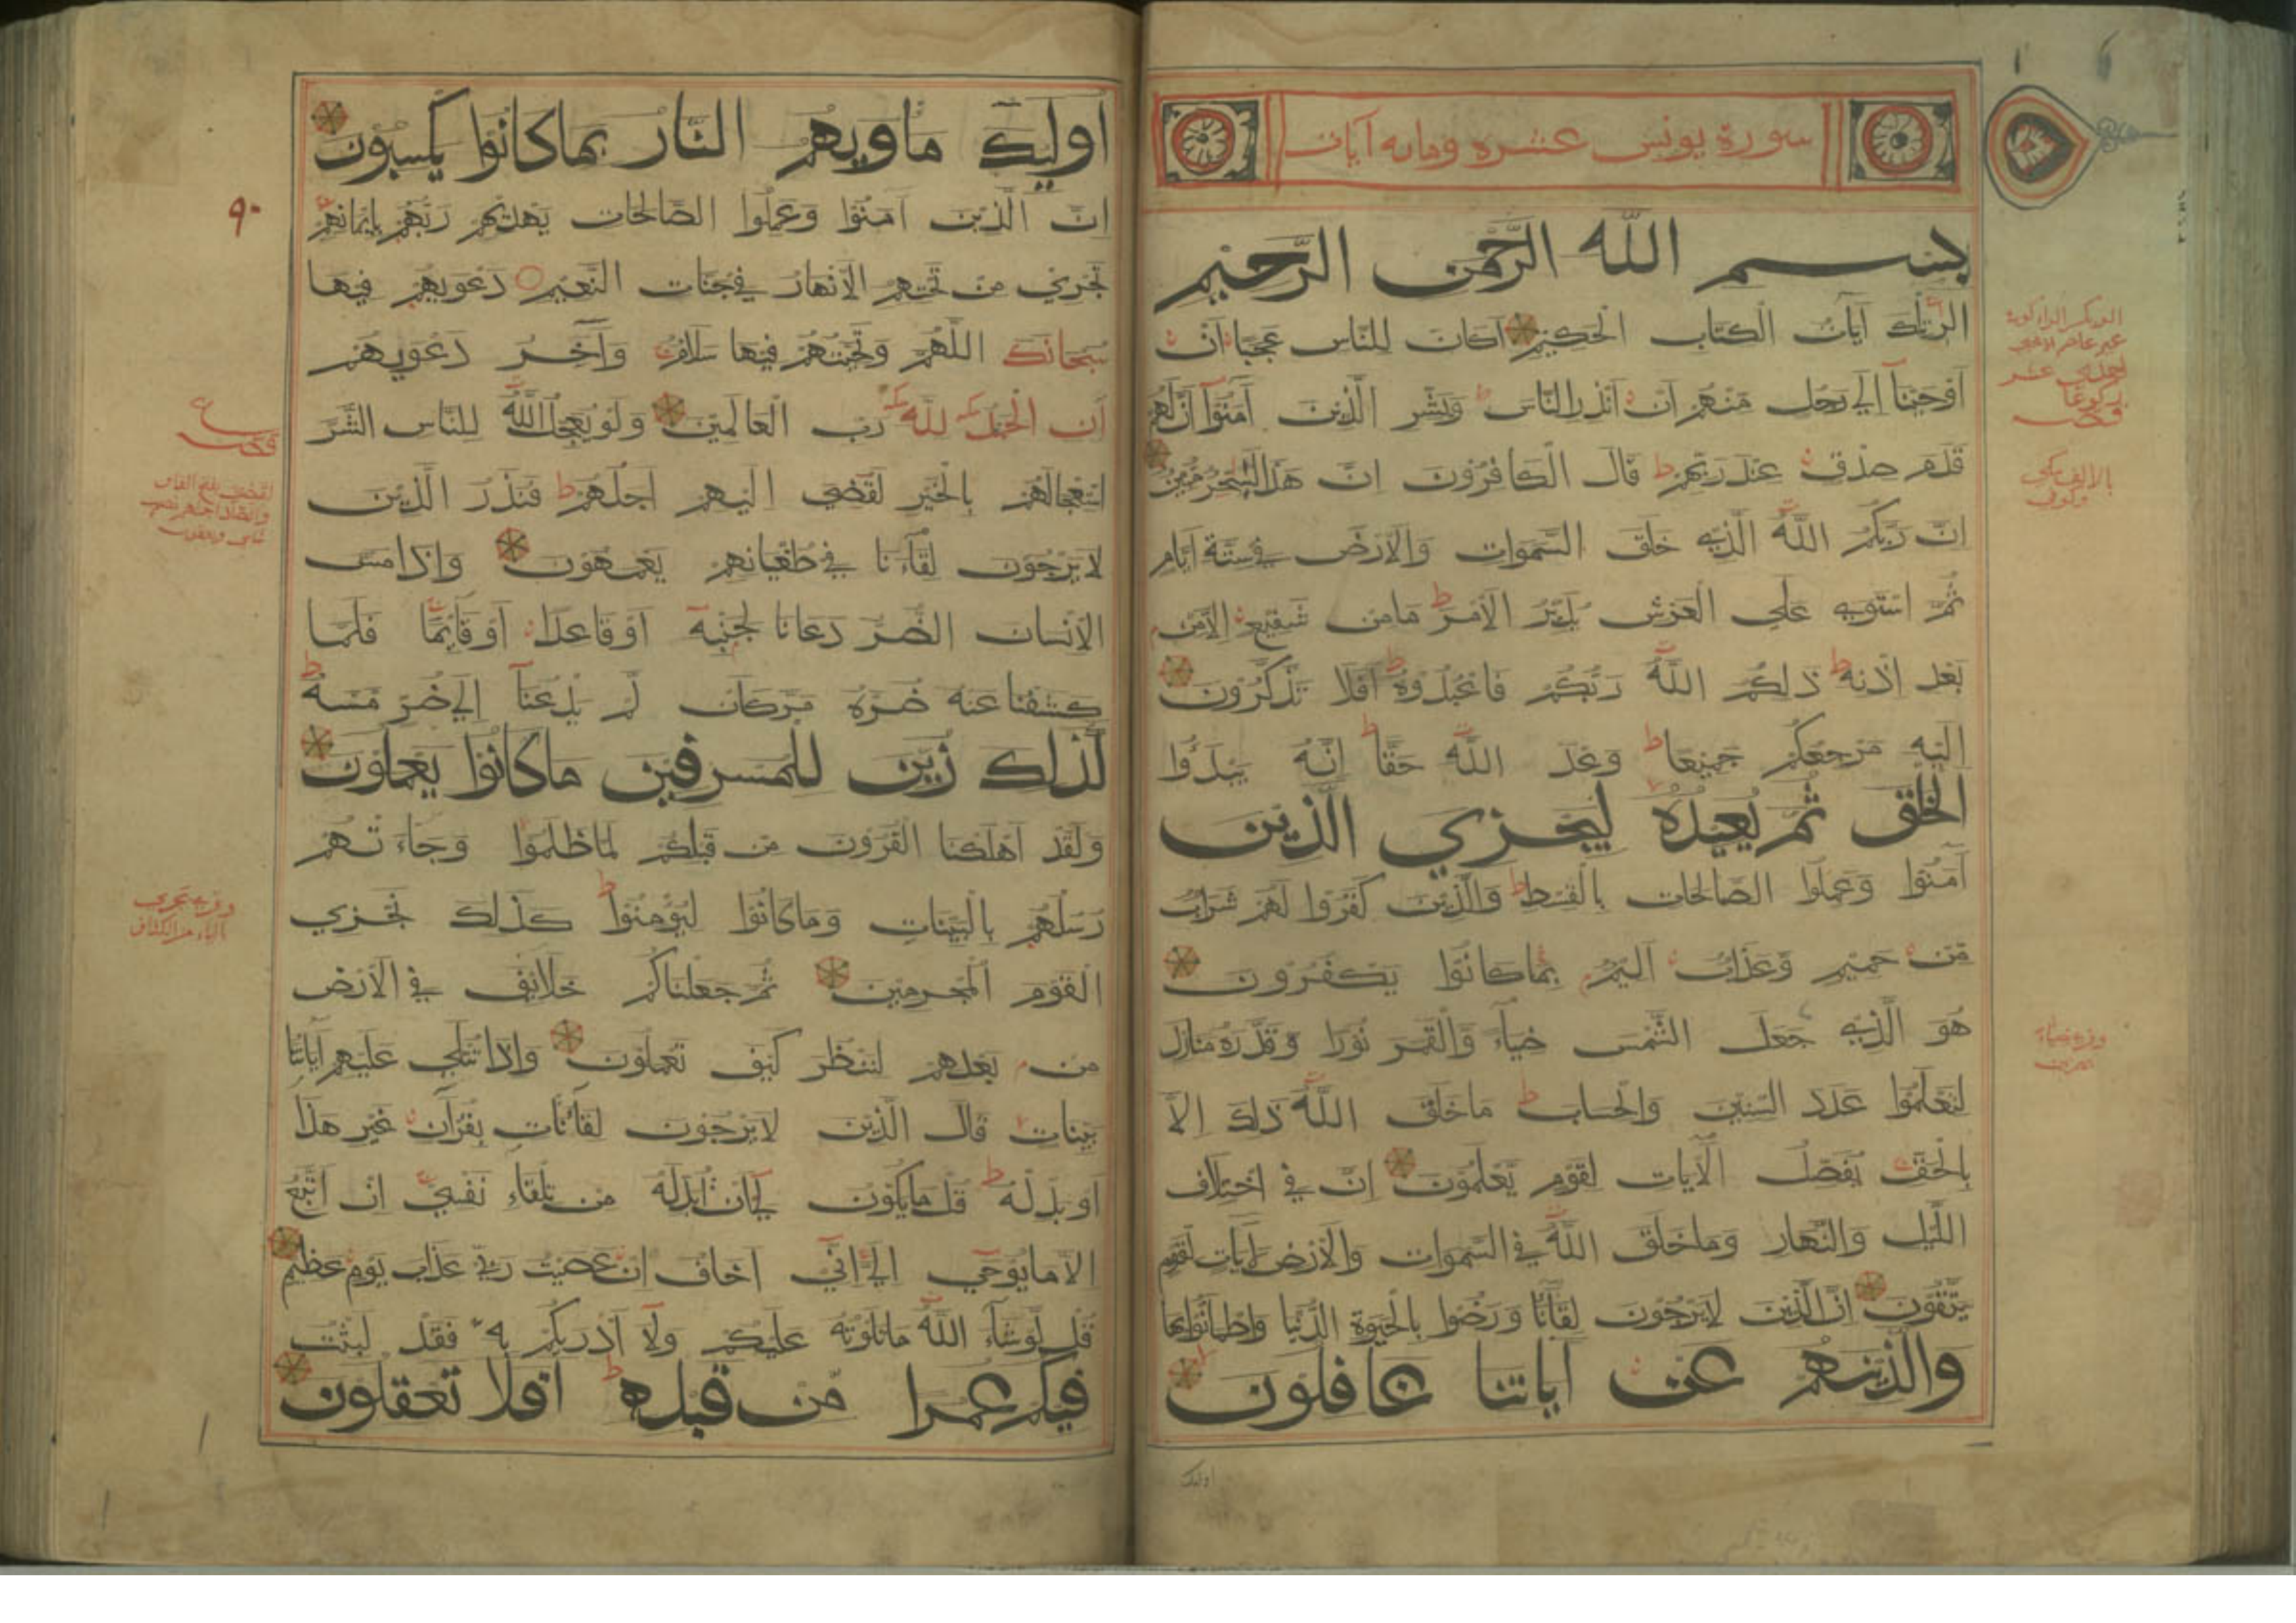 سورة يونس عشره ومايه آيات
بسم الله الرحمن الرحيم
الر تلك آيات الكتاب الحكيم اكان للناس عجبا ان
اوحينا الي رجل منهم ان انذر الناس وبشر الذين آمنوا ان لهم
قدم صدق عند ربهم قال الكافرون ان هذا لسحر مبين
ان ربكم الله الذي خلق السموات والارض في ستة ايام
ثم استوي علي العرش يدبر الامر ما من شفيع الا من
بعد اذنه ذلكم الله ربكم فاعبدوه افلا تذكرون
اليه مرجعكم جميعا وعد الله حقا انه يبدؤا
الخلق ثم يعيده ليجزي الذين
آمنوا وعملوا الصالحات بالقسط والذين كفروا لهم شراب
من حميم وعذاب اليم بما كانوا يكفرون
هو الذي جعل الشمس ضياء والقمر نورا وقدره منازل
لتعلموا عدد السنين والحساب ما خلق الله ذلك الا
بالحق يفصل الآيات لقوم يعلمون ان في اختلاف
الليل والنهار وما خلق الله في السموات والارض لآيات لقوم
يتقون ان الذين لا يرجون لقآءنا ورضوا بالحيوة الدنيا واطمانوا بها
والذينهم عن آياتنا غافلون
اوليك
اوليك ماويهم النار بما كانوا يكسبون
ان الذين آمنوا وعملوا الصالحات يهديهم ربهم بايمانهم
تجري من تحتهم الانهار في جنات النعيم دعويهم فيها
سبحانك اللهم وتحيتهم فيها سلام وآخر دعويهم
ان الحمد لله رب العالمين ولو يعجل الله للناس الشر
استعجالهم بالخير لقضي اليهم اجلهم فنذر الذين
لا يرجون لقآءنا في طغيانهم يعمهون واذا مس
الانسان الضر دعانا لجنبه او قاعدا او قايما فلما
كشفنا عنه ضره مر كان لم يدعنآ الي ضر مسه
كذلك زين للمسرفين ما كانوا يعملون
ولقد اهلكنا القرون من قبلكم لما ظلموا وجاءتهم
رسلهم بالبينات وما كانوا ليؤمنوا كذلك نجزي
القوم المجرمين ثم جعلناكم خلائف في الارض
من بعدهم لننظر كيف تعملون واذا تتلي عليهم آياتنا
بينات قال الذين لا يرجون لقاءنا ات بقرآن غير هذا
او بدله قل ما يكون لي ان ابدله من تلقاء نفسي ان اتبع
الا ما يوحي الي اني اخاف ان عصيت ربي عذاب يوم عظيم
قل لو شاء الله ما تلوته عليكم ولا ادريكم به فقد لبثت
فيكم عمرا من قبله افلا تعقلون
٩٠